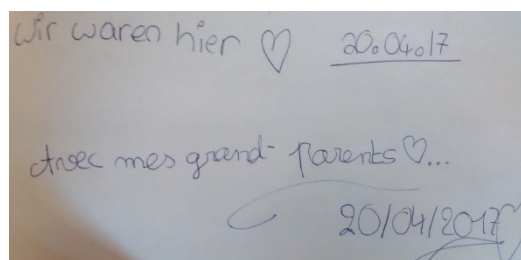 Wir waren hier ♡ 20.04.17
Avec mes grand-parents ♡...
20/04/2017